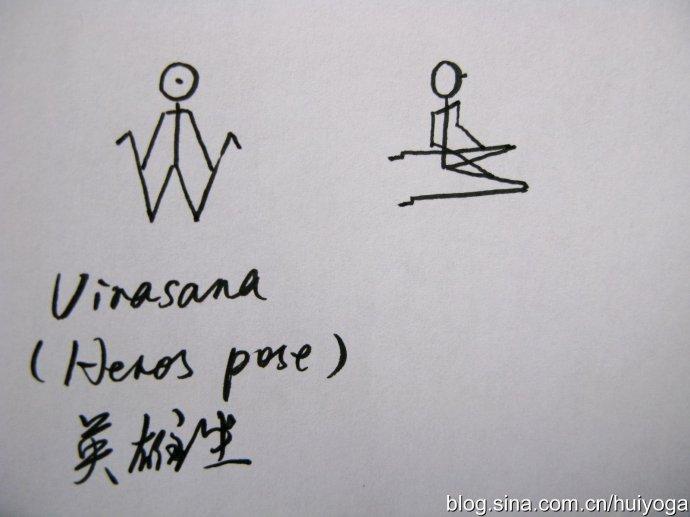 Virasana
(Heros pose)
英雄坐
blog.sina.com.cn/huiyoga